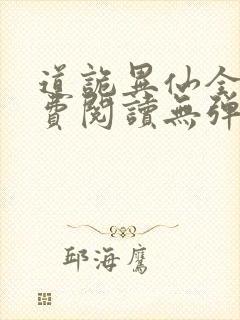 道詭異仙全
費閱讀無彈
邱海鷹